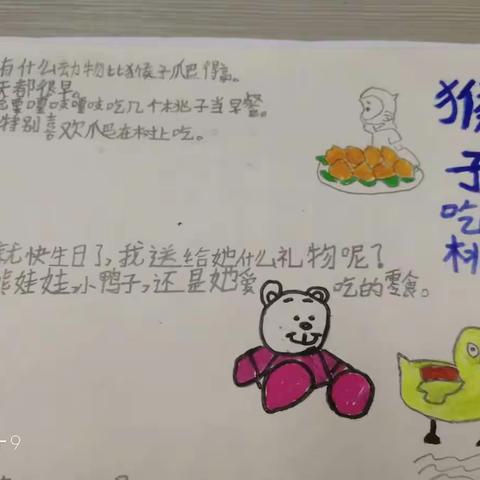 有什么动物比猴子爬得高。
都很早。
要噻吃几个桃子当早餐。
特别喜欢爬在树上吃。
猴子吃桃
快生日了,我送给她什么礼物呢?
娃娃,小鸭子,还是她爱 吃的零食。
-9